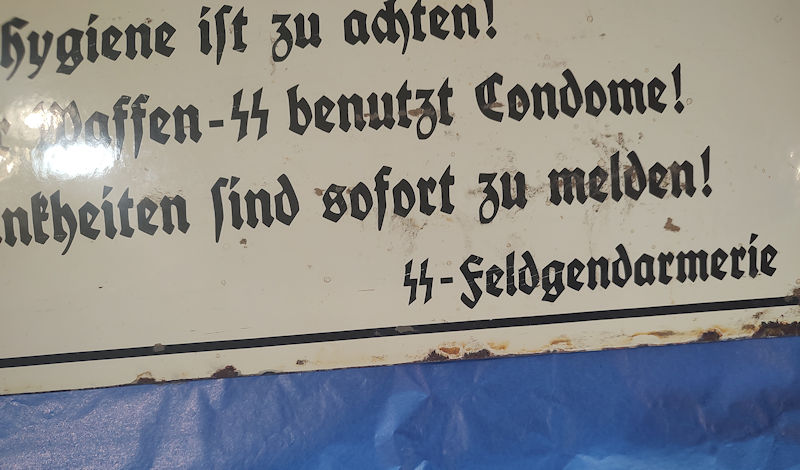 Hygiene ist zu achten!
Waffen-SS benutzt Condome!
ankheiten sind sofort zu melden!
SS-Feldgendarmerie